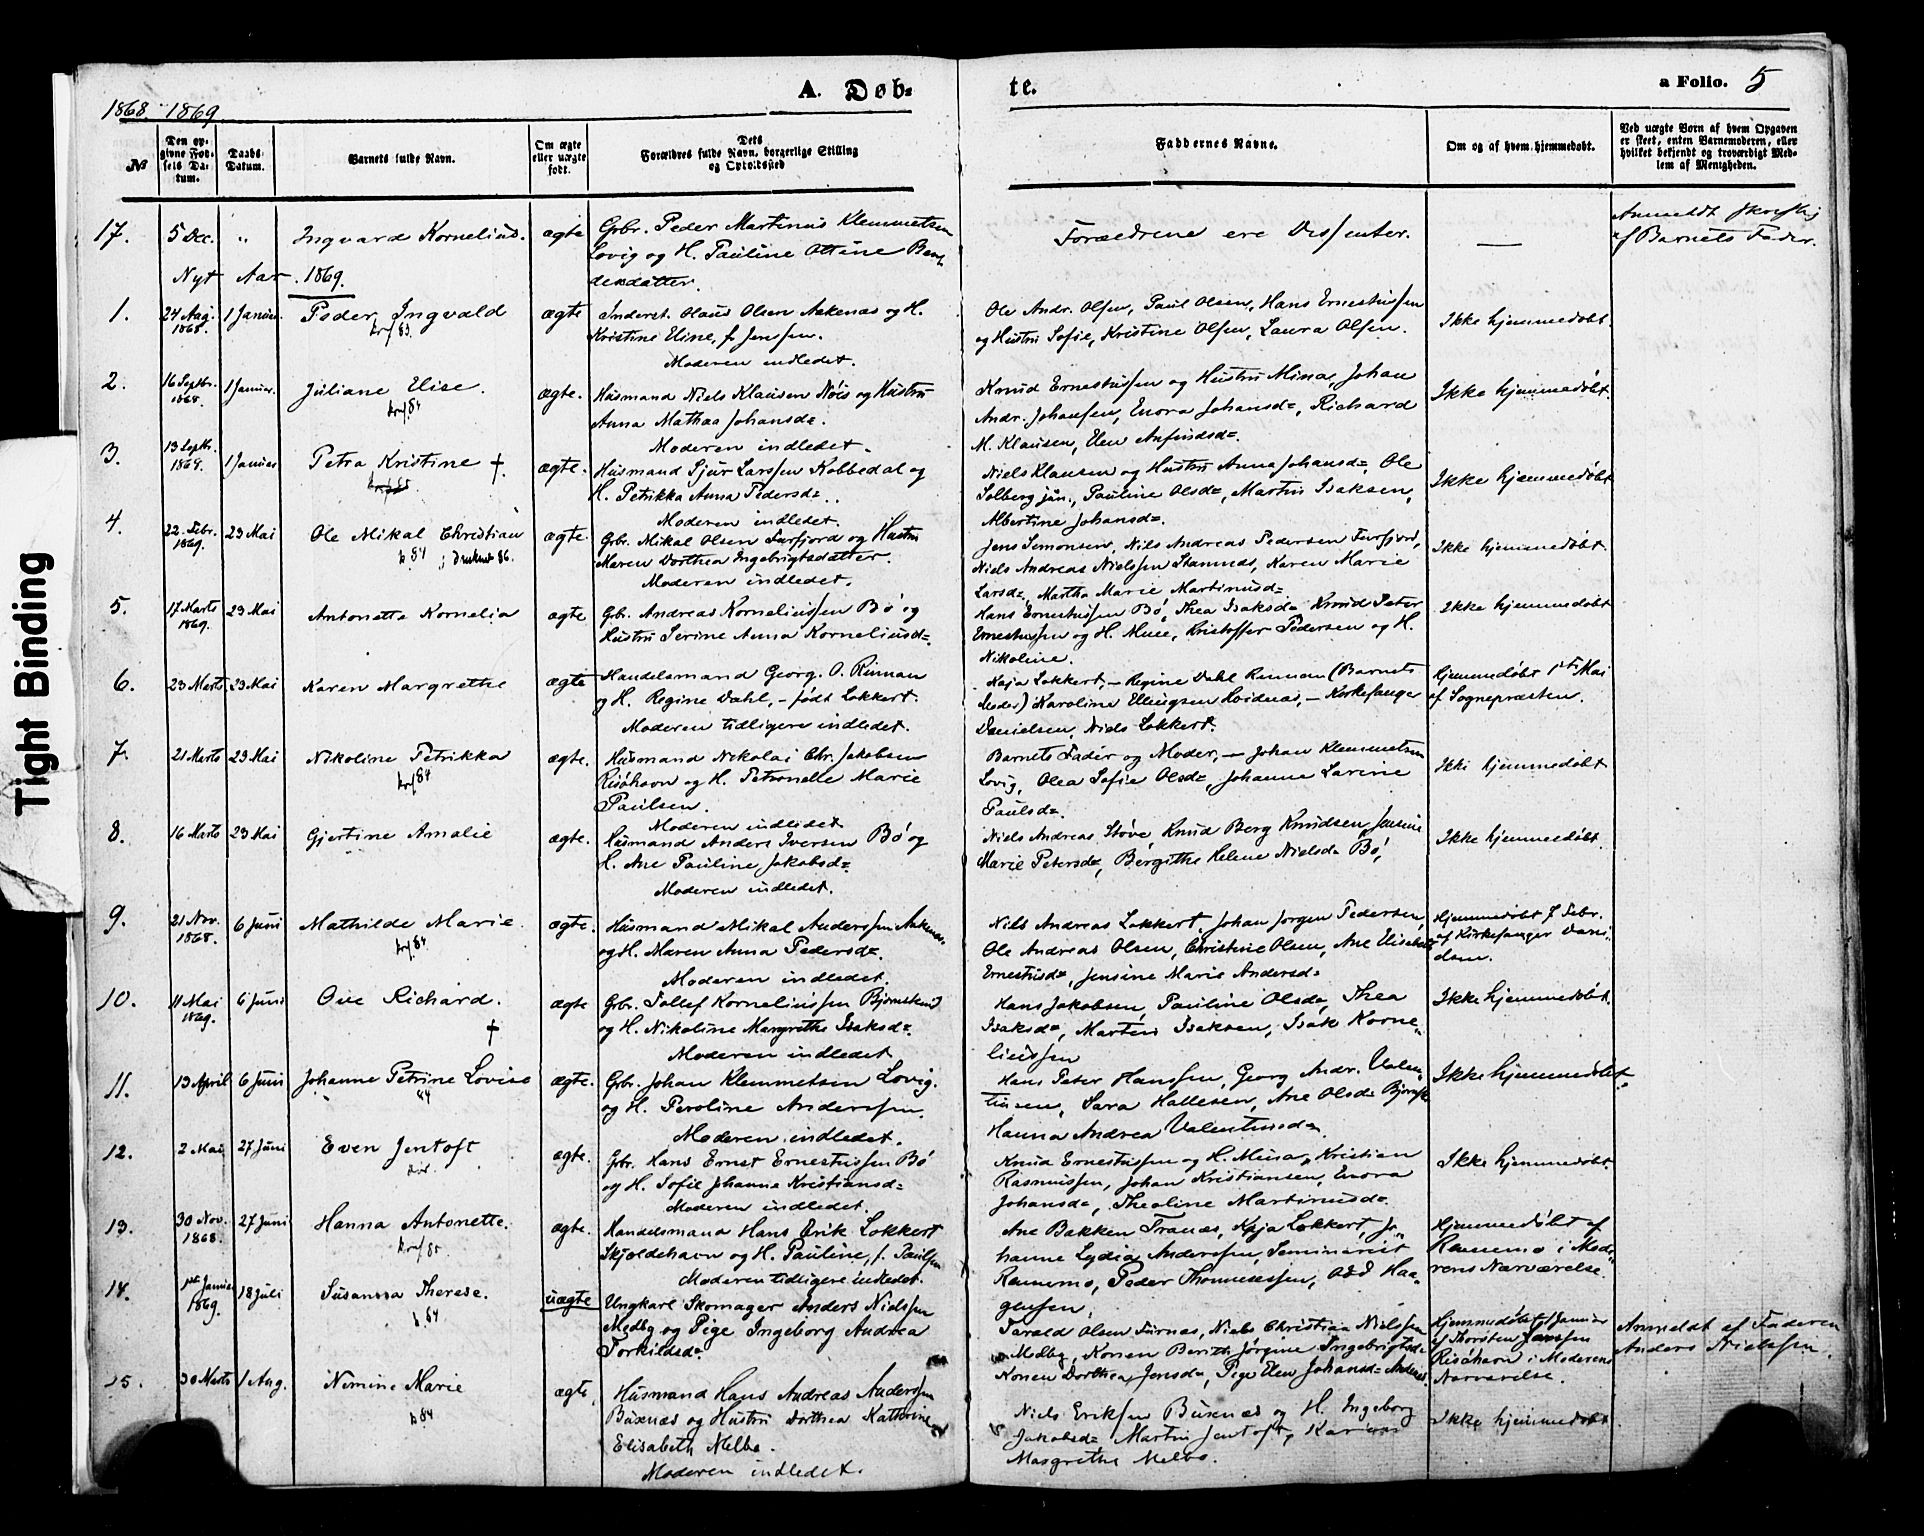 1868 1869
A. Døb-
te.
a Folio. 5
Tight Binding
№
Den op-
givne Fød-
sels Da-
tum.
Daabs
Datum.
Barnets fulde Navn.
Om ægte
eller uægte
født.
Dets
Forældres fulde Navn, borgerlige Stilling
og Opholdssted
Faddernes Navne.
Om og af hvem hjemmedøbt.
Ved uægte Børn af hvem Opgaven
er skeet, enten Barnemoderen, eller
hvilket bekjendt og troværdigt Med-
lem af Menigheden.
17. 5 Dec. " Ingvard Kornelius. ægte
Grbr. Peder Martinus Klemmetsen
Lovig og H. Pauline Ottine Ben-
desdatter.
Forældrene ere Dissenter. —
Anmeldt skriftlig
af Barnets Fader.
Nyt Aar 1869.
1. 24 Aug. 1868. 1 Januar. Peder Ingvald ægte
krf 83.
Inderst. Olaus Olsen Aakenæs og H.
Kristine Eline, f. Jenssen.
Moderen indledet.
Ole Andr. Olsen, Paul Olsen, Hans Ernestussen
og Hustru Sofie, Kristine Olsen, Laura Olsen.
Ikke hjemmedøbt.
2. 16 Septbr. 1868. 1 Januar. Juliane Elise. ægte.
krf 84
Husmand Niels Klausen Nöis og Hustru
Anna Mathea Johansd=
Moderen indledet.
Knud Ernestussen og Hustru Mina, Johan
Andr. Johansen, Enora Johansd=, Richard
M. Klausen, Elen Anfindsd=.
Ikke hjemmedøbt.
3. 13 Septbr. 1868. 1 Januar Petra Kristine †. ægte.
Husmand Sjur Larssen Kobbedal og
H. Petrikka Anna Pedersd=.
Moderen indledet.
Niels Klausen og Hustru Anna Johansd=, Ole
Solberg jun., Pauline Olsd=, Martin Isaksen,
Albertine Johansd=.
Ikke hjemmedøbt
4. 22 Febr. 1869. 23 Mai Ole Mikal Christian ægte
k 84 ; Druknet 86.
Grbr. Mikal Olsen Furfjord og Hustru
Maren Dorthea Ingebrigtsdatter.
Moderen indledet.
Jens Simonsen, Nils Andreas Pedersen Furfjord,
Niels Andreas Nielssen Stamnes, Karen Marie
Larsd=, Martha Marie Martinusd=
Ikke hjemmedøbt.
5. 17 Marts 1869. 23 Mai Antonette Kornelia ægte
Gb. Andreas Korneliussen Bö og
Hustru Serine Anna Korneliusd=.
Hans Ernestussen Bö, Thea Isaksd=, Knud Peter
Ernestussen og H. Mine, Kristoffer Pedersen og H.
Nikoline.
Ikke hjemmedøbt
6. 23 Marts 23 Mai Karen Margrethe ægte
Handelsmand Georg. O. Rinnan
og H. Regine Dahl, - født Lokkert.
Moderen tidligere indledet.
Kaja Lokkert, - Regine Dahl Rinnan (Barnets
Moder) Karoline Ellingsen Hvidnes, - Kirkesanger
Danielsen, Niels Lokkert.
Hjemmedøbt 1ste Mai
af Sognepræsten.
7. 21 Marts 23 Mai Nikoline Petrikka ægte.
krf 84
Husmand Nikolai Chr. Jakobsen
Risöhavn og H. Petronelle Marie
Paulsen.
Moderen indledet
Barnets Fader og Moder, - Johan Klemmetsen
Lovig, Olea Sofie Olsd=, Johanna Larine
Paulsd=
Ikke hjemmedøbt
8. 16 Marts 23 Mai Gjertine Amalie ægte.
Husmand Anders Iversen Bö og
H. Ane Pauline Jakobsd=.
Moderen indledet.
Niels Andreas Støve, Knud Berg Knudsen, Jensine
Marie Petersd=, Bergithe Helene Nielsd= Bö,
Ikke hjemmedøbt.
9. 21 Nov. 1868. 6 Juni Mathilde Marie. ægte.
krf 84
Husmand Mikal Anderssen Aakenes
og H. Maren Anna Pedersd=.
Moderen indledet.
Nils Andreas Lokkert, Johan Jørgen Pedersen,
Ole Andreas Olsen, Christine Olsen, Ane Elisabeth
Ernestusd=, Jensine Marie Andersd=
Hjemmedøbt 7 Febr.
af Kirkesanger Dani-
elsen.
10. 11 Mai 1869. 6 Juni Ove Richard. ægte
†
Grbr. Tollef Korneliussen Bjørnskind
og H. Nikoline Margrethe Isaksd=.
Moderen indledet
Hans Jakobsen, Pauline Olsd=, Thea
Isaksd=, Martin Isaksen, Isak Korne-
liussen
Ikke hjemmedøbt.
11. 13 April 6 Juni Johanne Petrine Lovise ægte.
84
Grbr. Johan Klemmetsen Lovig.
og H. Peroline Anderssen.
Moderen indledet.
Hans Peter Hanssen, Georg Andr. Valen-
tinsen, Sara Hallesen, Ane Olsd= Bjørnsk
Hanna Andrea Valentinsd=
Ikke hjemmedøbt.
12. 2 Mai 27 Juni Even Jentoft ægte.
Grbr. Hans Ernst Ernestussen Bö
og H. Sofie Johanna Kristiansd=
Moderen indledet.
Knud Ernestussen og H. Mina, Kristian
Rasmussen, Johan Kristiansen, Enora
Johansd=, Theoline Martinusd=.
Ikke hjemmedøbt
13. 30 Nov. 1868. 27 Juni Hanna Antonette. ægte.
Handelsmand Hans Erik Lokkert
Skjoldehavn og H. Pauline, f. Paulssen
Moderen tidligere indledet.
Ane Bakken Tranæs, Kaja Lokkert, Jo-
hanne Lydia Anderssen, Seminarist
Rennemo, Peder Thommessen, Odd Haa-
gensen.
Hjemmedøbt af
Rennemo i Mode-
rens Nærværelse.
14. 1ste Januar 1869. 18 Juli Susanna Therese. uægte
k. 84
Ungkarl Skomager Anders Nielssen
Medby og Pige Ingeborg Andrea
Torkildsd=
Tarald Olsen Furnæs, Niels Christian Nielssen
Medby, Konen Berith Jørgine Ingebrigtsd=
Konen Dorthea Jensd=, Pige Elen Johansd=
Hjemmedøbt 1 Januar
af Thorsten Janssen
Risöhavn i Moderens
Nærværelse.
Anmeldt af Faderen
Anders Nielssen.
15. 30 Marts 1 Aug. Nimine Marie ægte,
k 84
Husmand Hans Andreas Anderssen
Buxnæs og Hustru Dorthea Kathrine
Elisabeth Melbo.
Moderen indledet.
Niels Eriksen Buxnæs og H. Ingeborg
Jakobsd= Martin Jentoft,
Margrethe Melbo.
Ikke hjemmedøbt